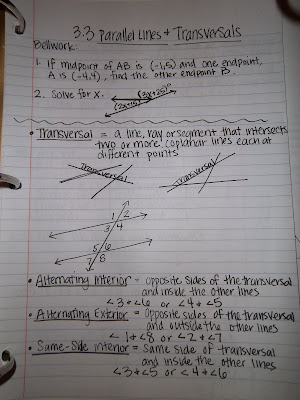 3.3 Parallel Lines + Transversals
Bellwork:
1. If midpoint of AB is (-1,5) and one endpoint,
A is (-4,4), find the other endpoint B.
2. Solve for x.
(3x+25)°
(2x+15)
• Transversal = a line, ray or segment that intersects
two or more coplanar lines each at
different points
Transversal
Transversal
1 2
3 4
5 6
7 8
• Alternating Interior = opposite sides of the transversal
and inside the other lines
<3+<6 or <4+<5
• Alternating Exterior = opposite sides of the transversal
and outside the other lines
<1+<8 or <2+<7
• Same-Side interior = Same side of transversal
and inside the other lines
<3+<5 or <4+<6